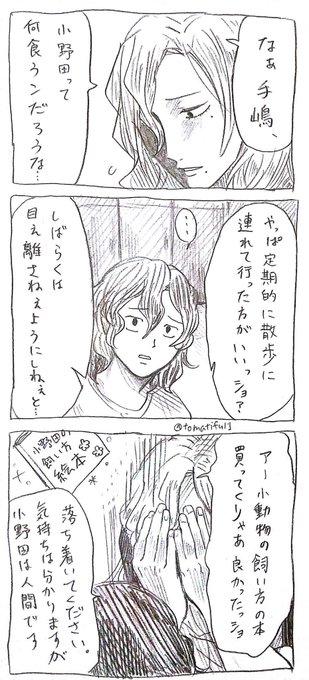 なぁ 手嶋、
小野田って
何食うンだろうな…
…
やっぱ定期的に散歩に
連れて行った方がいいっショ?
しばらくは
目ぇ離さねぇようにしねぇと…
@tomatiful1
アー小動物の飼い方の本
買ってくりゃあ良かったっショ
小野田の
飼い方
絵本
落ち着いてください。
気持ちは分かりますが
小野田は人間です